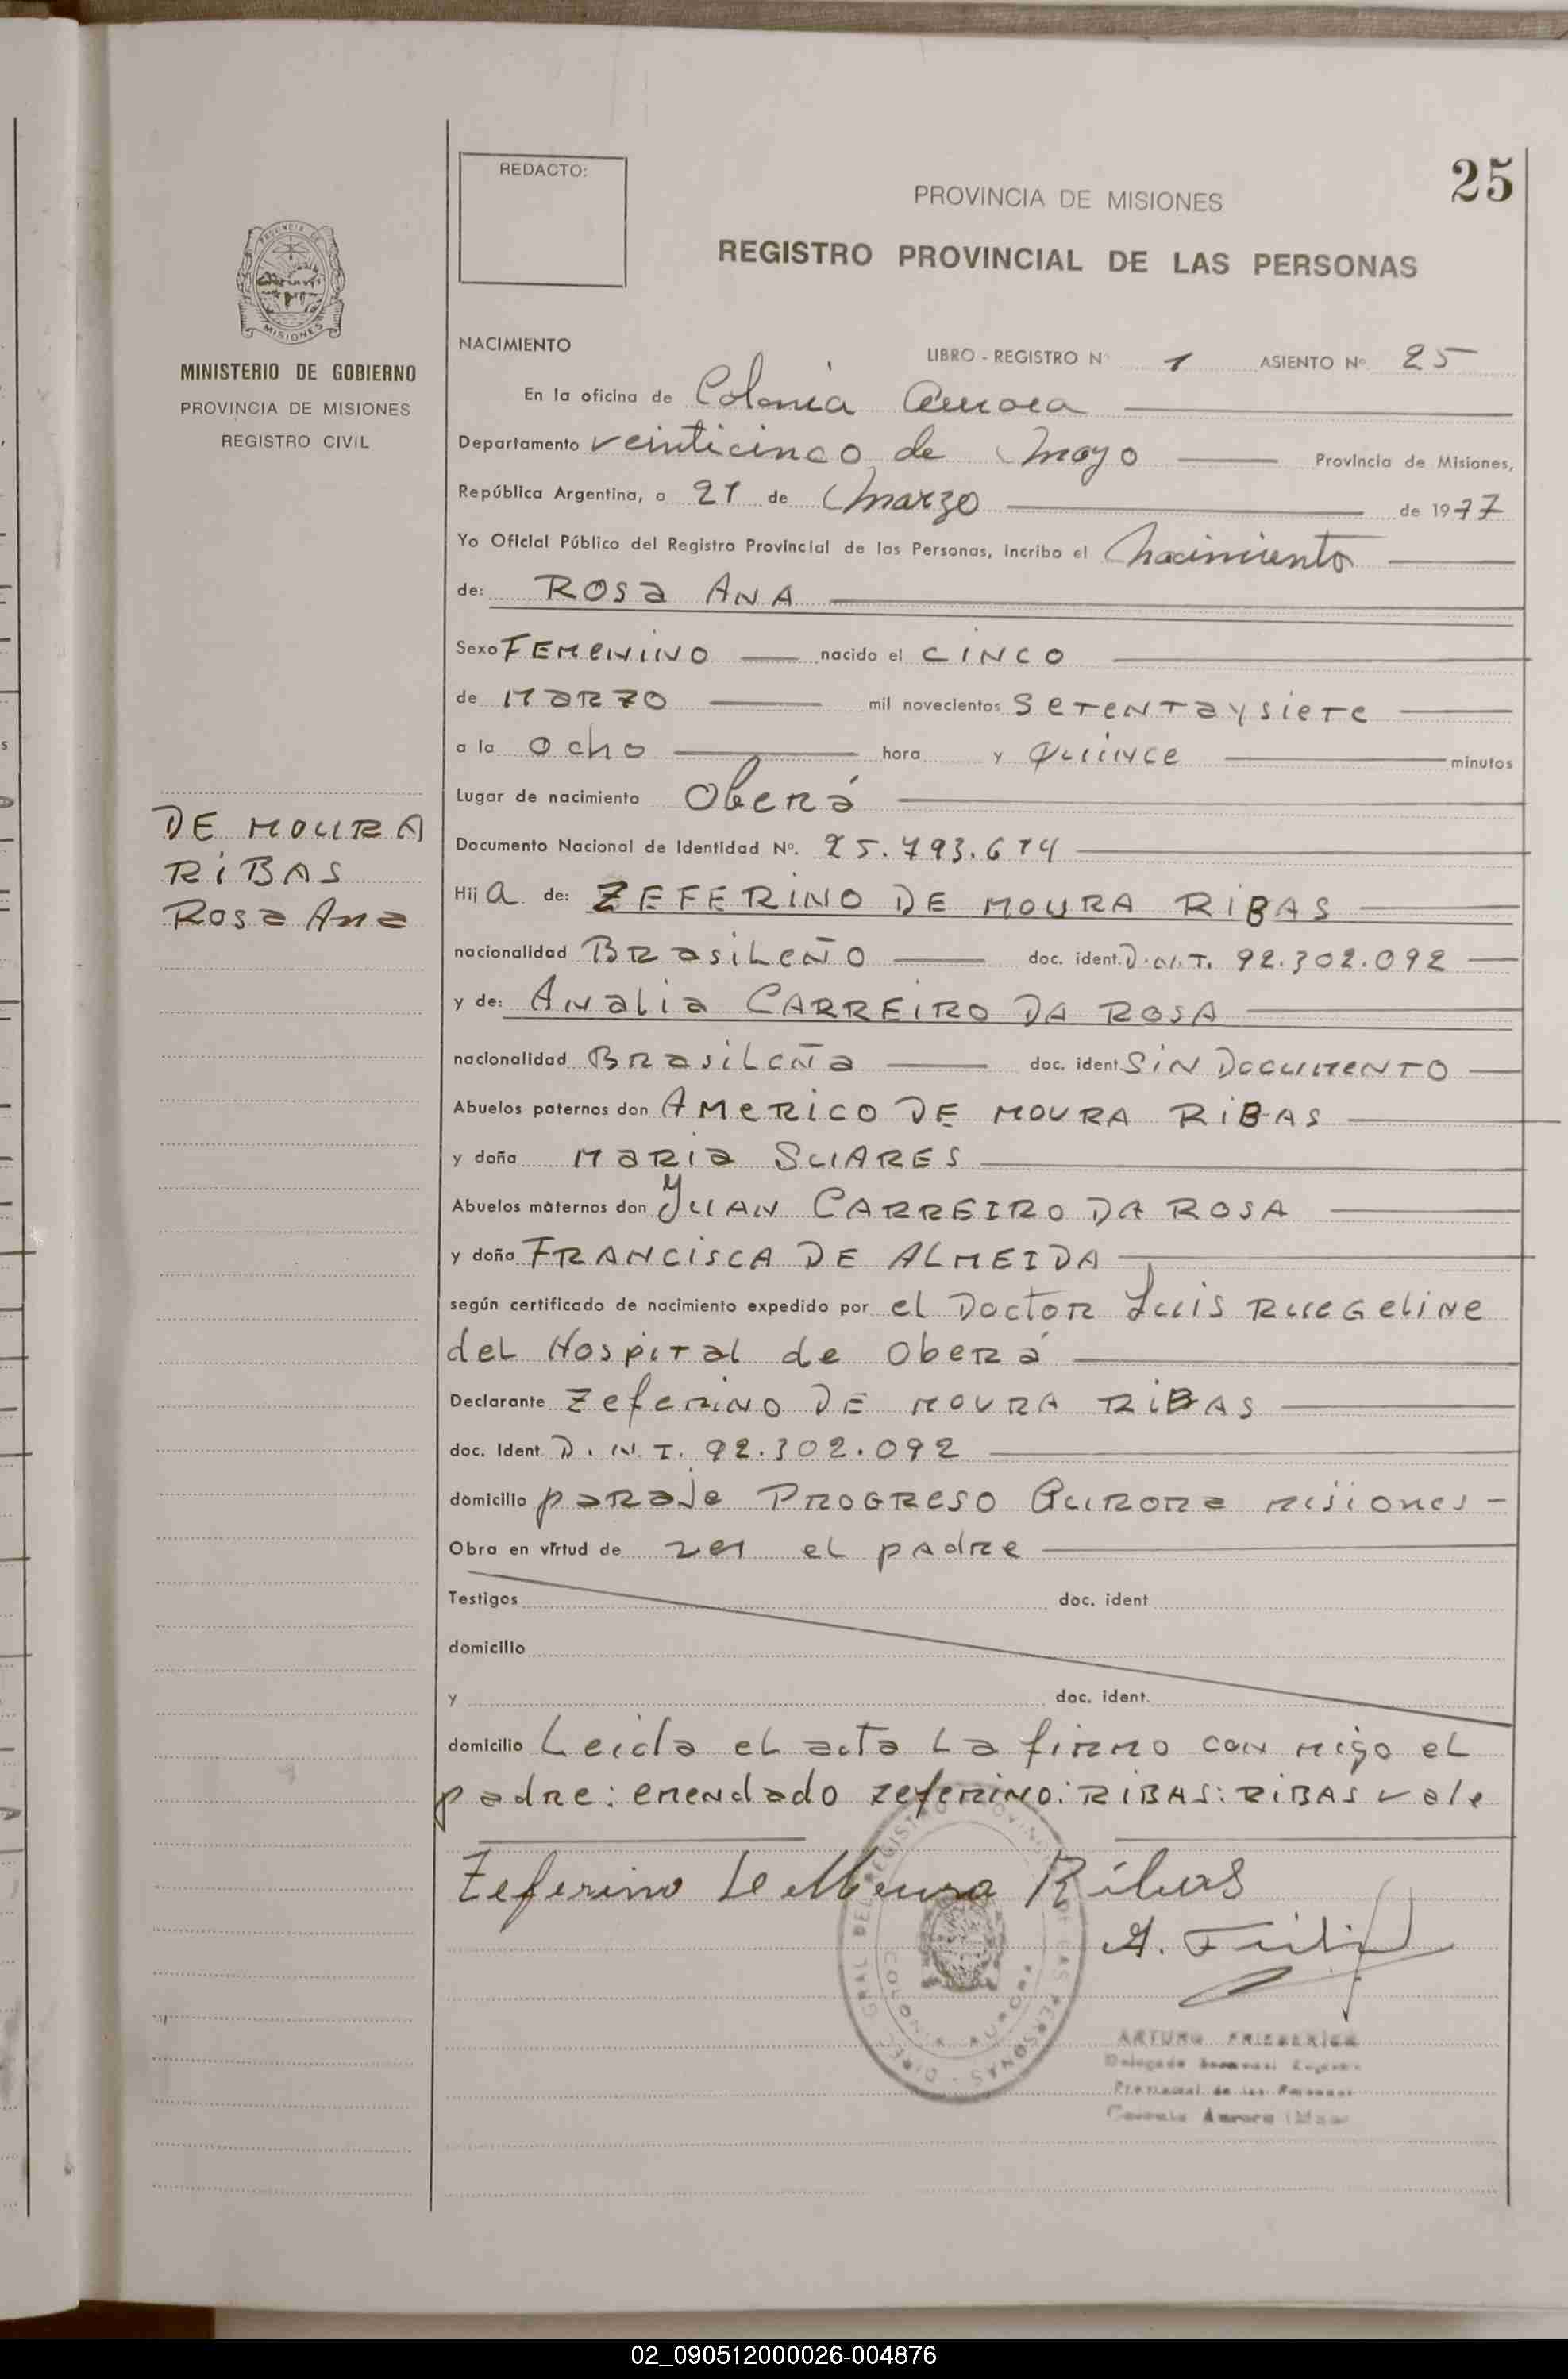 25
REDACTO:
PROVINCIA DE MISIONES
REGISTRO PROVINCIAL DE LAS PERSONAS
PROVINCIA DE
MISIONES
MINISTERIO DE GOBIERNO
PROVINCIA DE MISIONES
REGISTRO CIVIL
NACIMIENTO
LIBRO - REGISTRO Nº 1 ASIENTO Nº 25
En la oficina de Colonia Aurora
Departamento veinticinco de Mayo Provincia de Misiones,
República Argentina, a 21 de Marzo de 1977
Yo Oficial Público del Registro Provincial de las Personas, incribo el Nacimiento
de: ROSA ANA
Sexo FEMENINO nacido el CINCO
de MARZO mil novecientos SETENTAYSIETE
a la Ocho hora y QUINCE minutos
Lugar de nacimiento Oberá
DE MOURA
RIBAS
Rosa Ana
Documento Nacional de Identidad Nº. 25.793.614
Hija de: ZEFERINO DE MOURA RIBAS
nacionalidad BRASILEÑO doc. ident. D.N.I. 92.302.092
y de: ANALIA CARREIRO DA ROSA
nacionalidad BRASILEÑA doc. ident SIN DOCUMENTO
Abuelos paternos don AMERICO DE MOURA RIBAS
y doña MARIA SUARES
Abuelos maternos don JUAN CARREIRO DA ROSA
y doña FRANCISCA DE ALMEIDA
según certificado de nacimiento expedido por el Doctor Luis
del Hospital de Oberá
Declarante Zeferino DE MOURA RIBAS
doc. Ident D.N.I. 92.302.092
domicilio paraje PROGRESO AURORA Misiones -
Obra en virtud de ser el padre
Testigos doc. ident
domicilio
y doc. ident.
domicilio Leida el acta La firmo con migo el
padre: enendado zeferino: RIBAS: RIBAS vale
Zeferino de Moura Ribas
DIREC. GRAL DEL REGISTRO PROVINCIAL DE LAS PERSONAS
COLONIA AURORA
ARTURO
Provincial de las Personas
Colonia Aurora
02_090512000026-004876